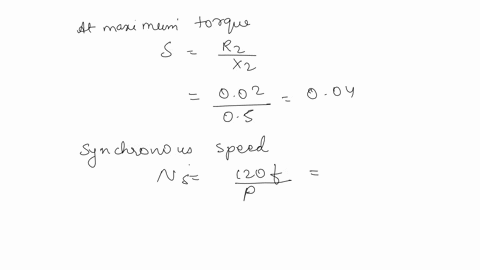 At maximum torque
S = R2/X2
= 0.02/0.5 = 0.04
Synchronous speed
Ns = 120f/P =